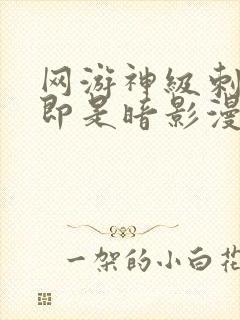 网游神级刺
即是暗影漫
一架的小白花